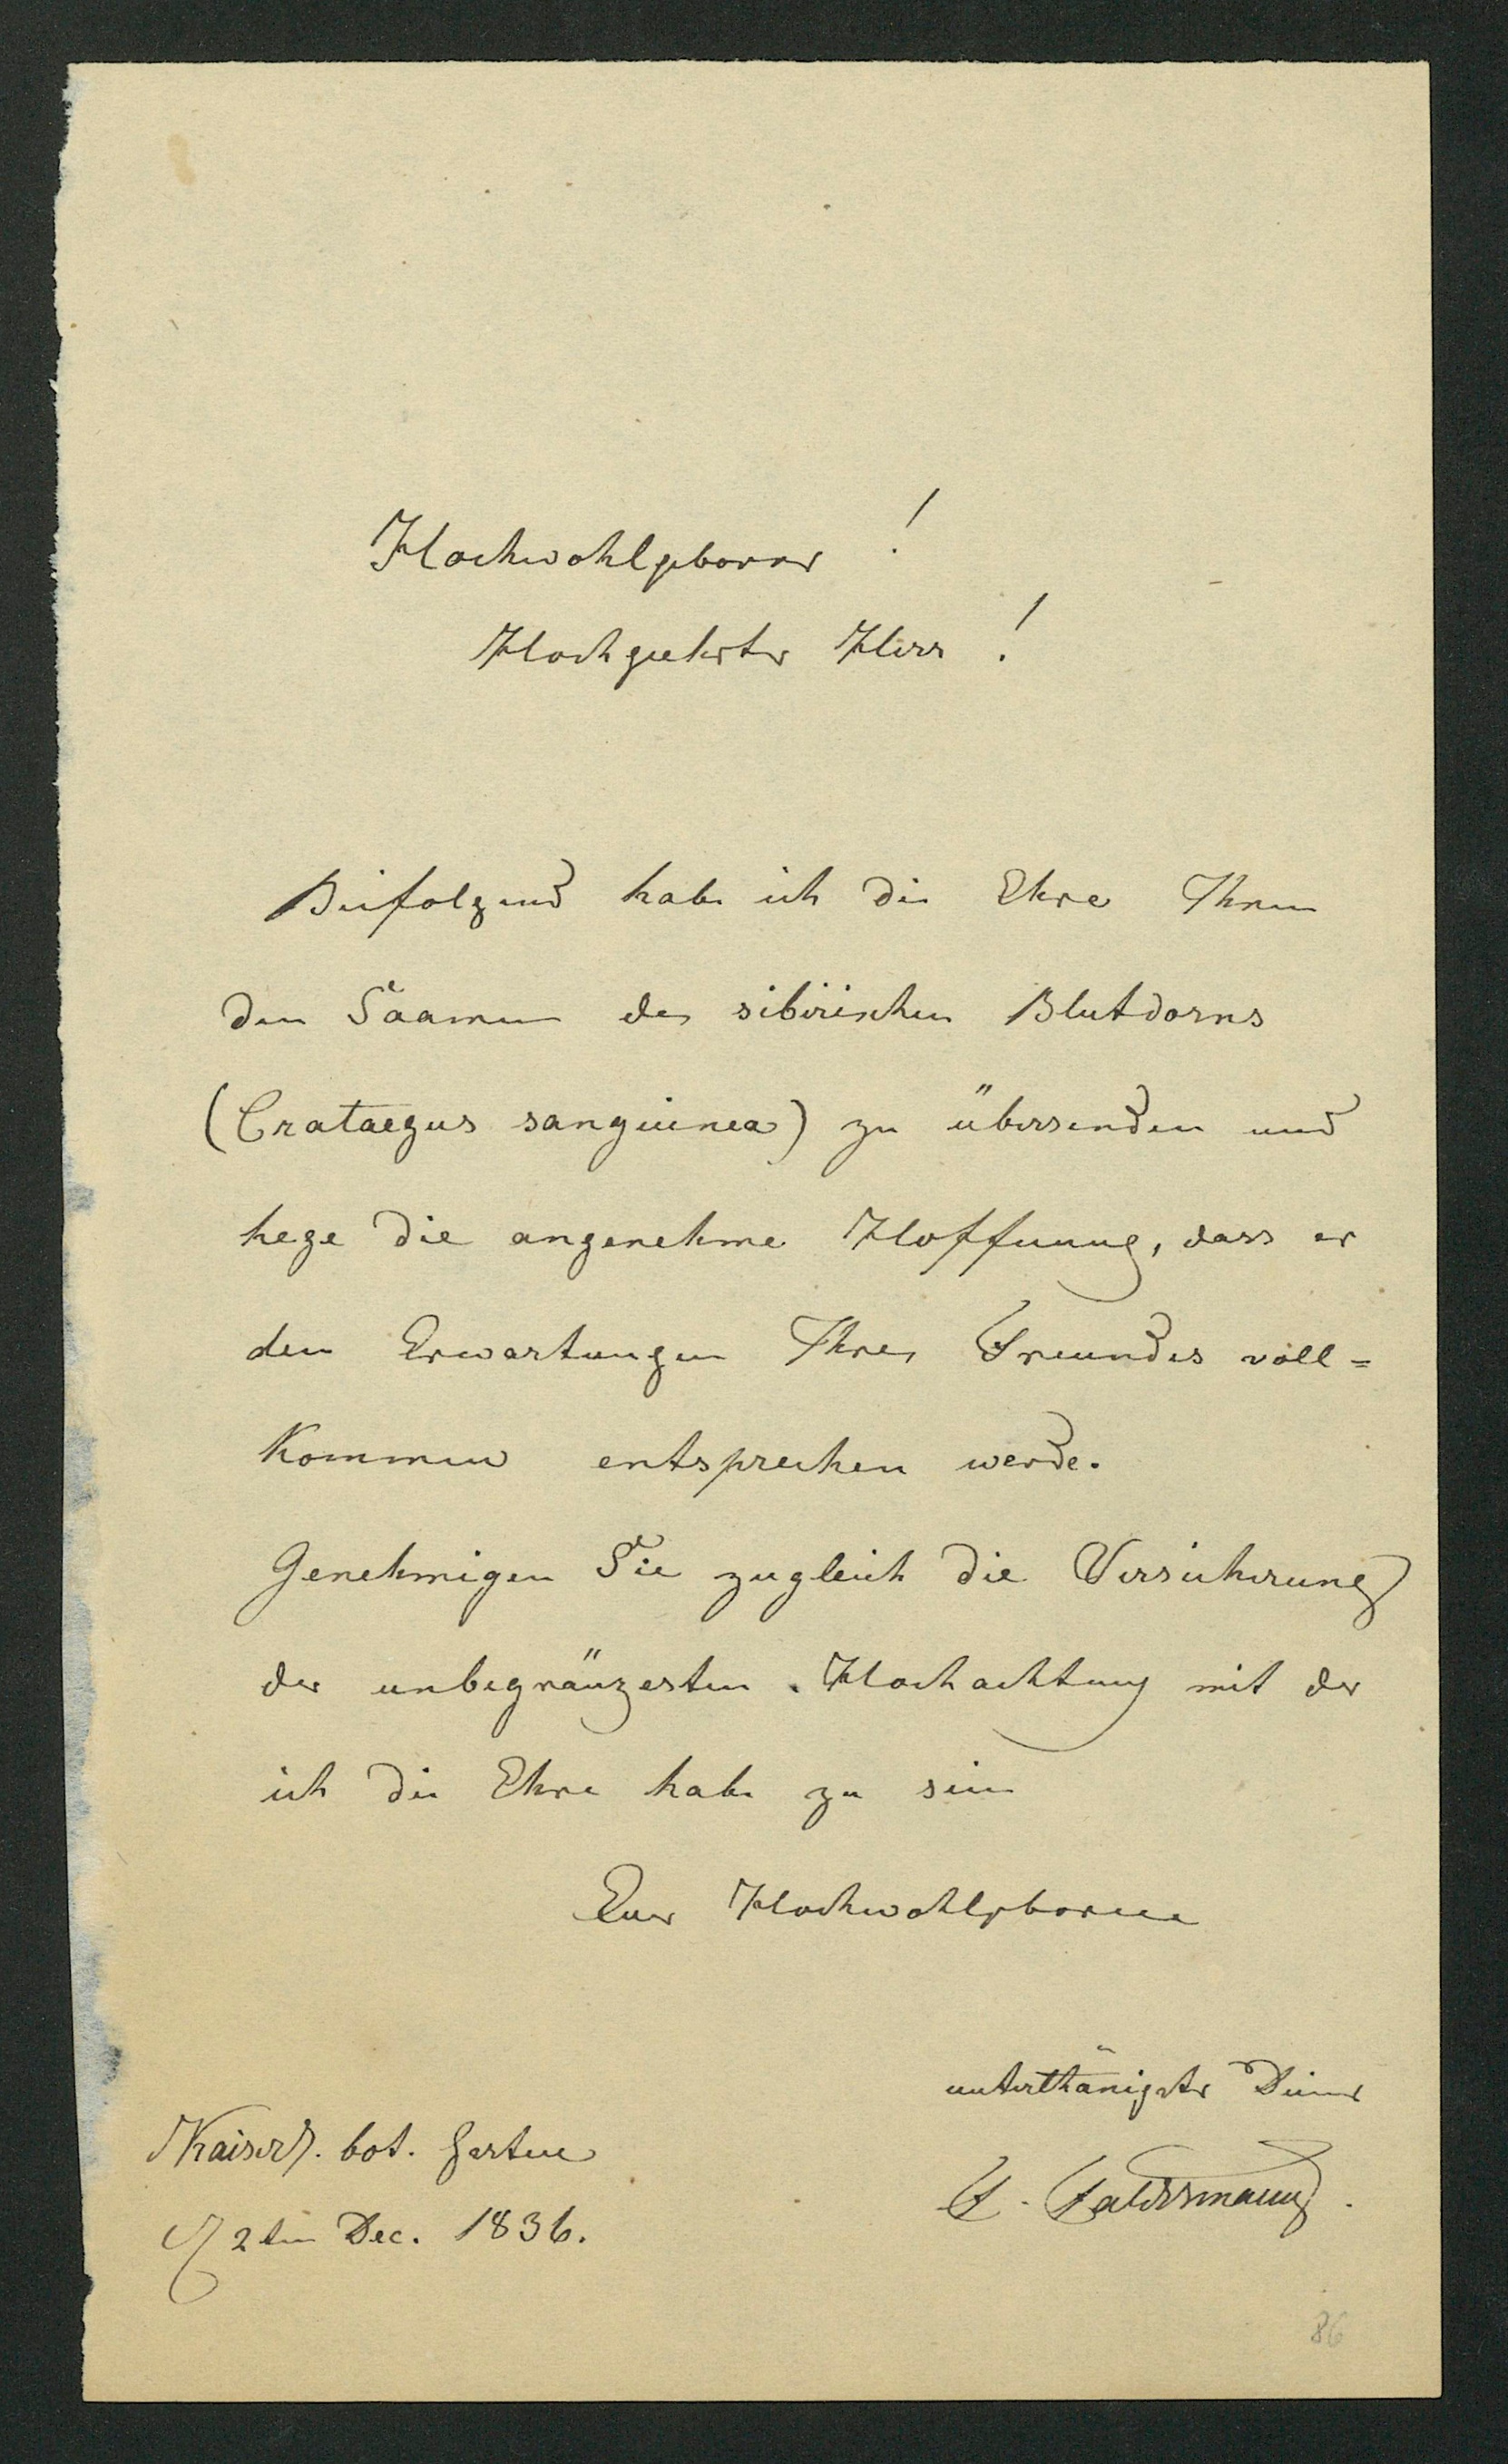 Hochwohlgeborner!
Hochgeehrter Herr!
Beifolgend habe ich die Ehre Ihnen
den Saamen des sibirischen Blutdorns
(Crataegus sanguinea) zu übersenden und
hege die angenehme Hoffnung, dass er
den Erwartungen Ihres Freundes voll=
kommen entsprechen werde.
Genehmigen Sie zugleich die Versicherung
der unbegränzesten Hochachtung mit der
ich die Ehre habe zu sein
Euer Hochwohlgeboren
unterthänigster Diener
F. Faldermann.
Kaiserl. bot. Garten
2ten Dec. 1836.
86